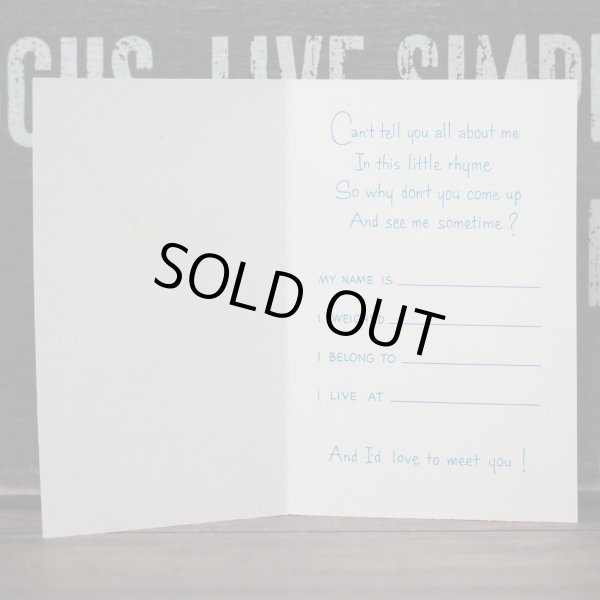 CUS. LIVE SIMPL
Can't tell you all about me
In this little rhyme
So why don't you come up
And see me sometime?
MY NAME IS
I WEIGHED
I BELONG TO
I LIVE AT
And I'd love to meet you!
SOLD OUT